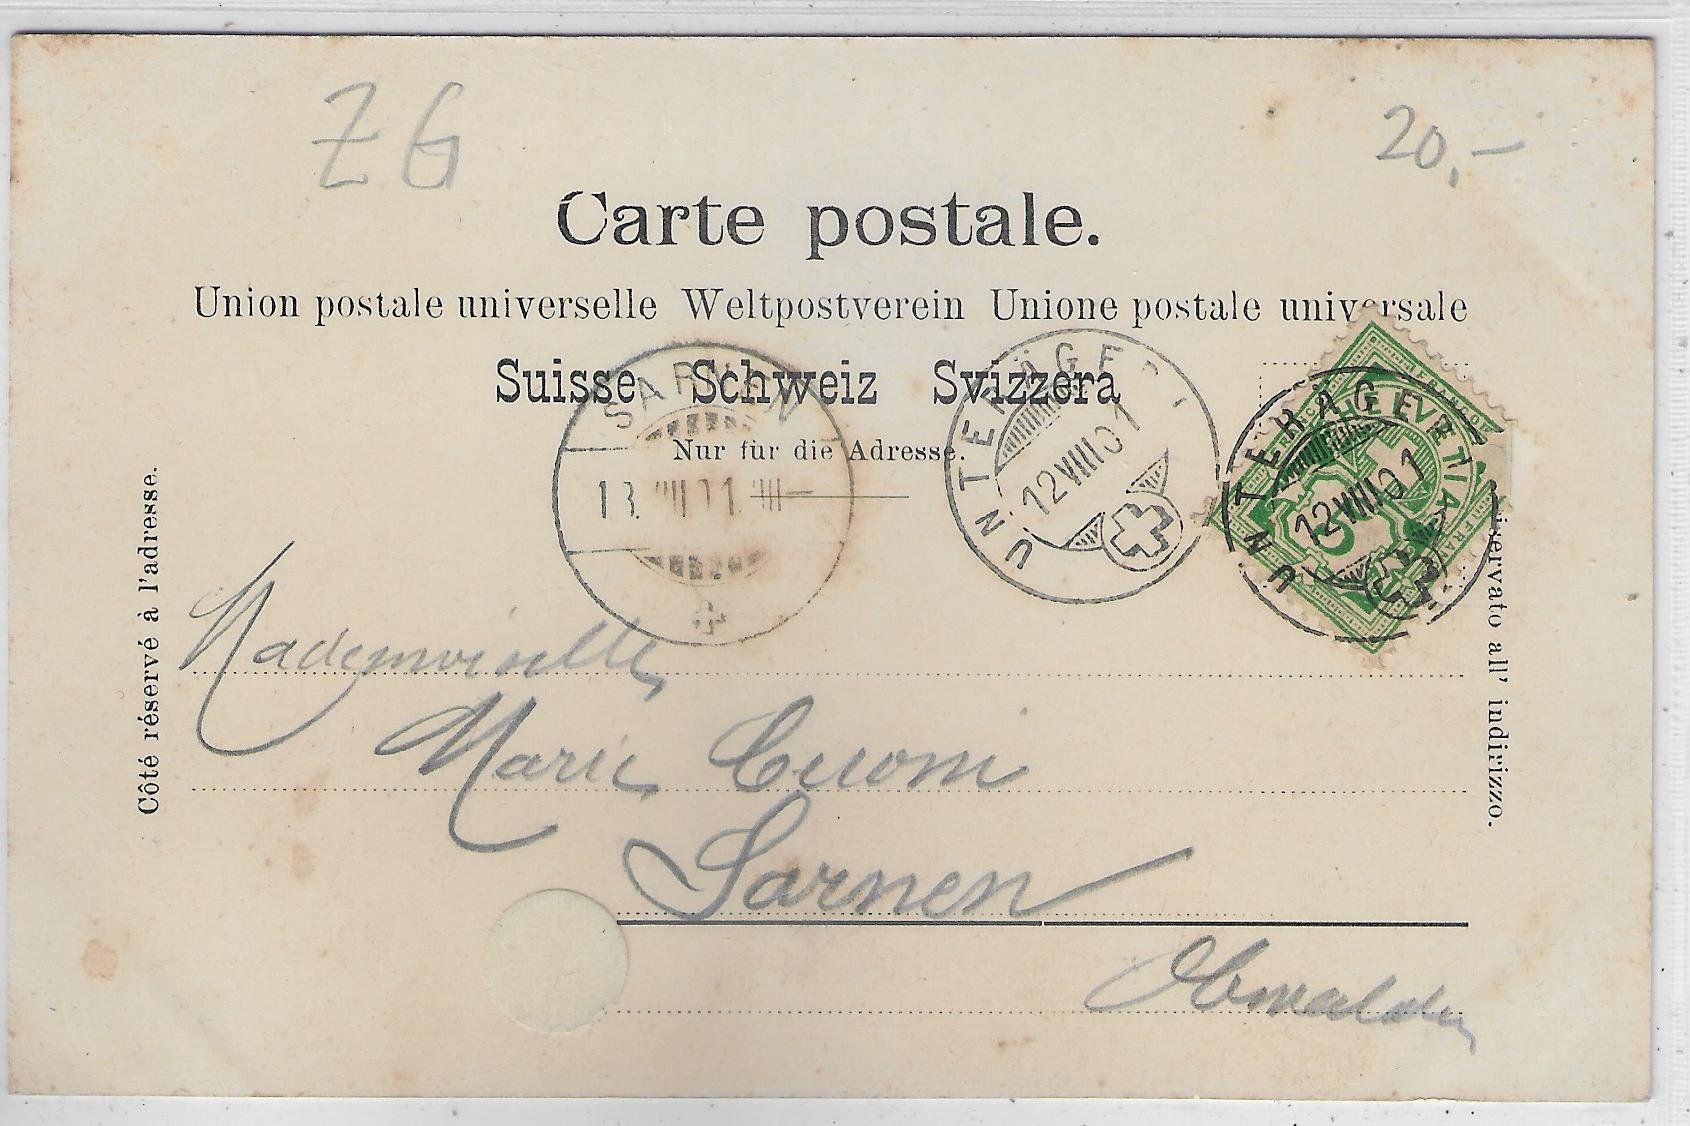 ZG
20,-
Carte postale.
Union postale universelle Weltpostverein Unione postale universale
Suisse Schweiz Svizzera
Nur für die Adresse.
SARNEN
UNTERÄGERI
12 VIII 01
UNTERÄGERI
12 VIII 01
HELVETIA
FRANCO
5
Côté réservé à l'adresse.
riservato all' indirizzo.
Mademoiselle
Marie
Sarnen
Obwalden